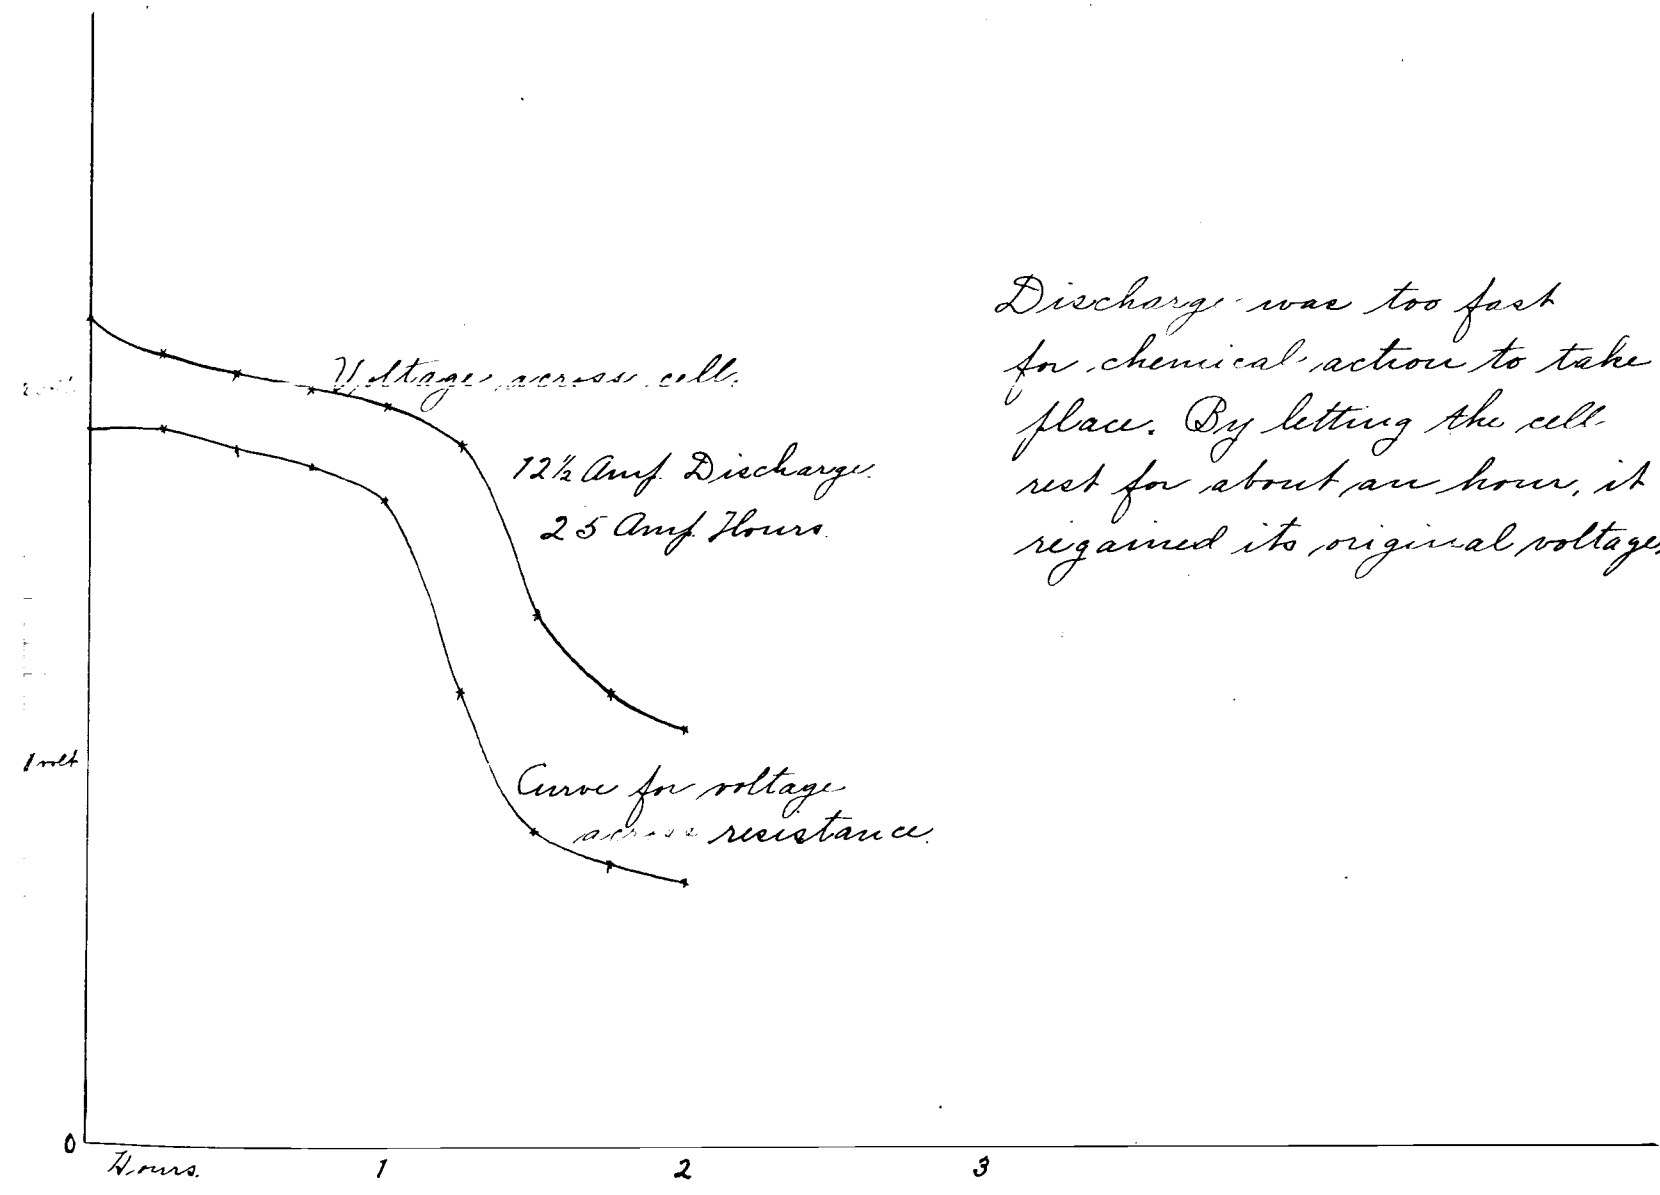 Discharge was too fast
for chemical action to take
place. By letting the cell
rest for about an hour, it
regained its original voltage.
Voltage across cell.
12½ Amp. Discharge.
25 Amp. Hours.
1 volt
Curve for voltage
across resistance.
0
Hours. 1 2 3